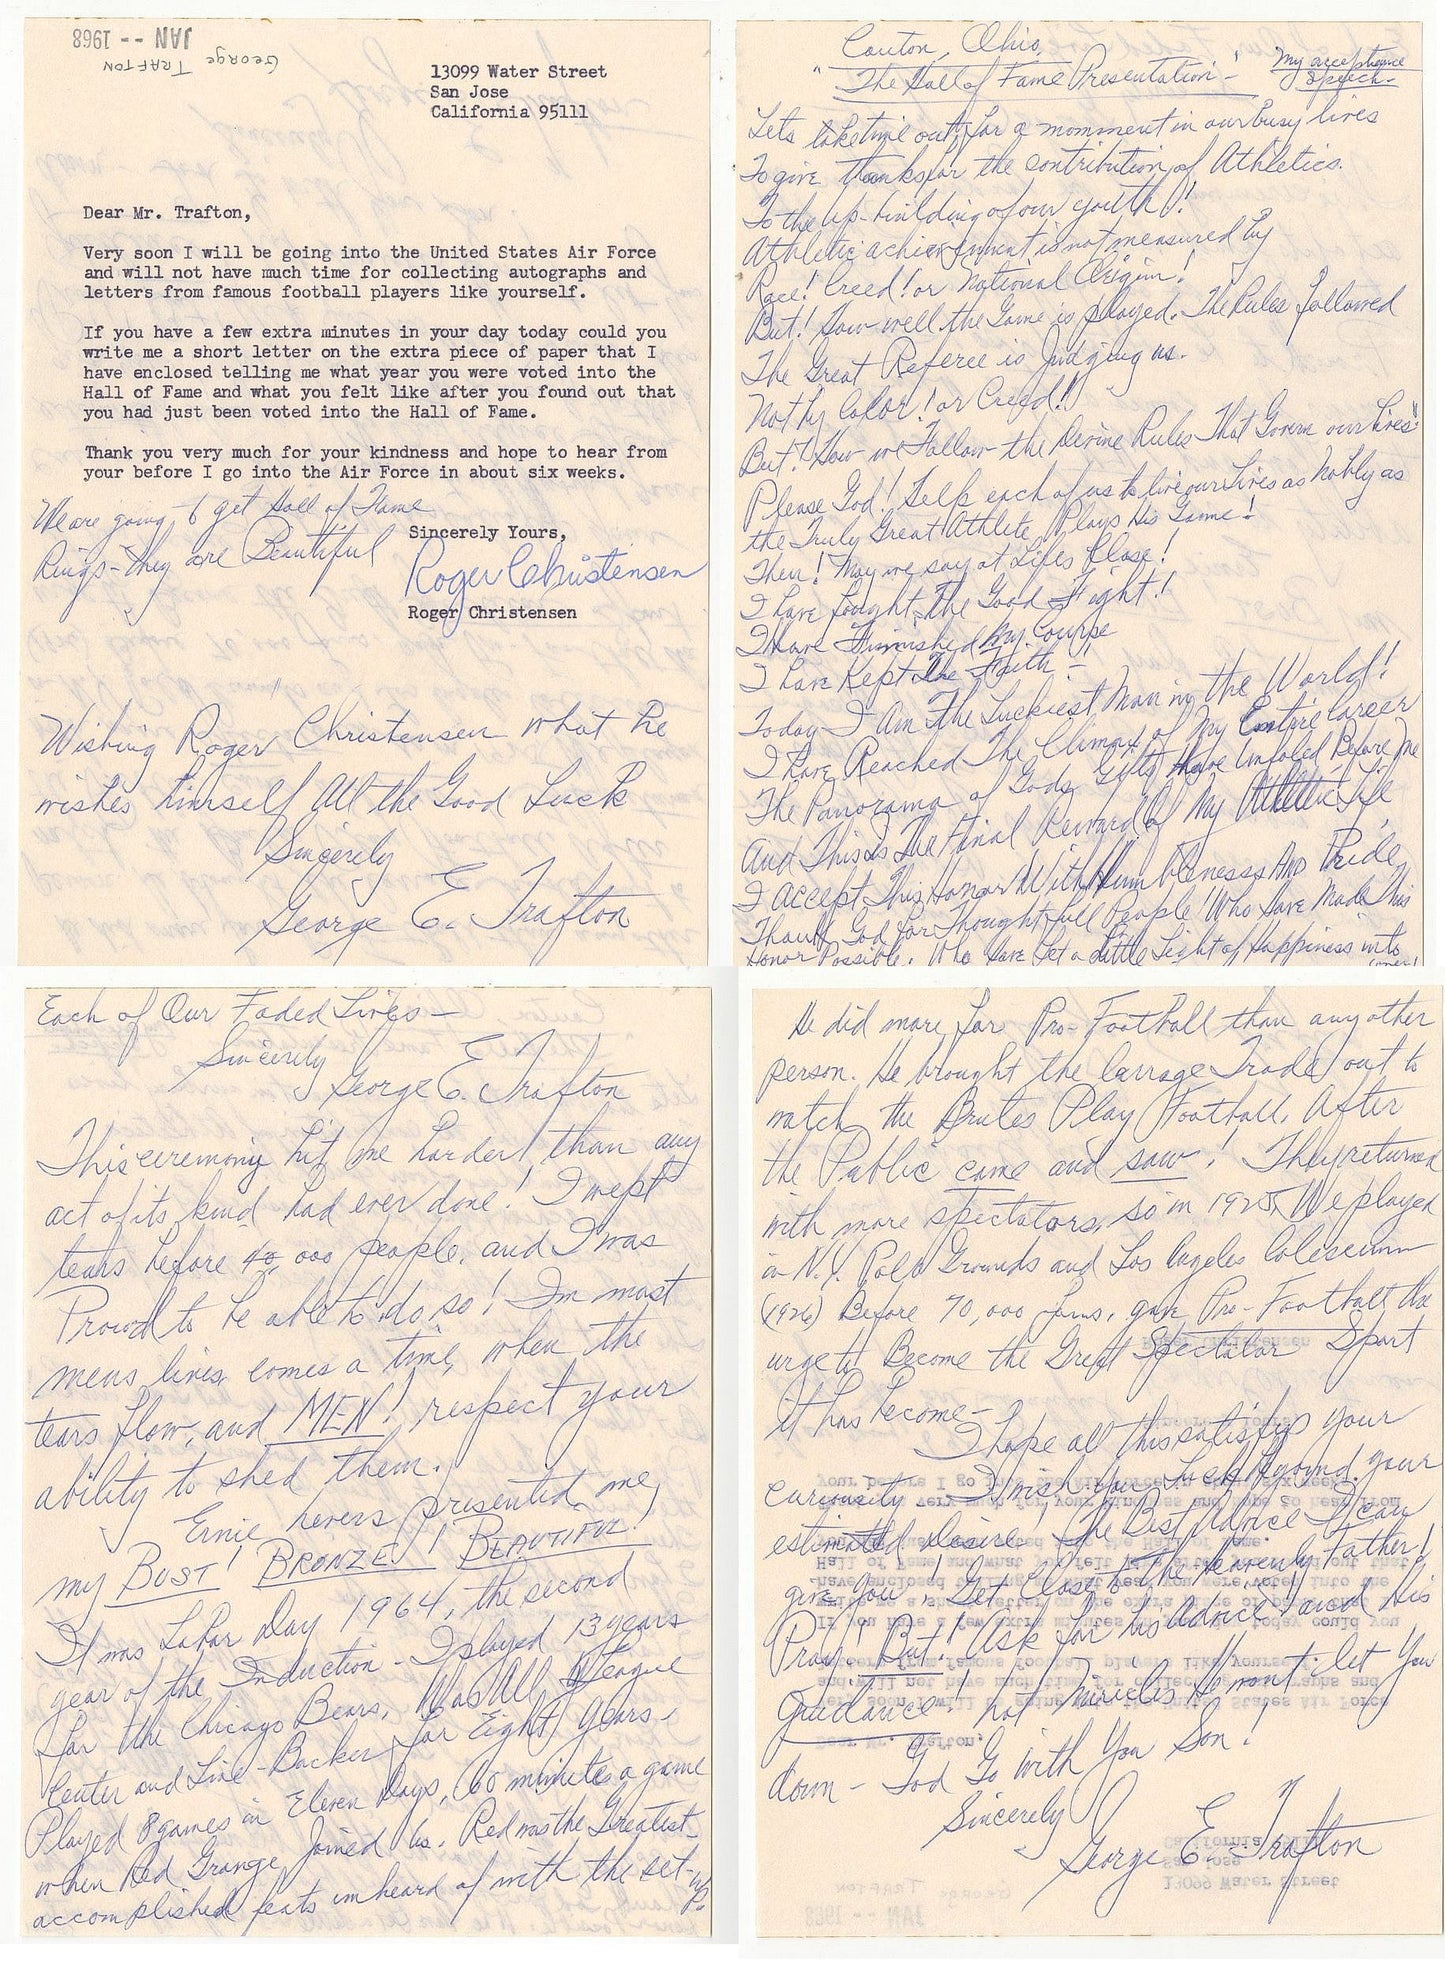 JAN -- 1968
George TRAFTON
13099 Water Street
San Jose
California 95111
Dear Mr. Trafton,
Very soon I will be going into the United States Air Force
and will not have much time for collecting autographs and
letters from famous football players like yourself.
If you have a few extra minutes in your day today could you
write me a short letter on the extra piece of paper that I
have enclosed telling me what year you were voted into the
Hall of Fame and what you felt like after you found out that
you had just been voted into the Hall of Fame.
Thank you very much for your kindness and hope to hear from
your before I go into the Air Force in about six weeks.
Sincerely Yours,
Roger Christensen
Roger Christensen
We are going to get Hall of Fame
Rings - they are Beautiful
Wishing Roger Christensen what he
wishes himself All the Good Luck
Sincerely
George E. Trafton
Canton, Ohio,
"The Hall of Fame Presentation"-
My acceptance
Speech-
Lets take time out, for a momment in our busy lives
To give thanks for the contribution of Athletics.
To the up-building of our youth!!
Athletic achievement is not measured by
Race! Creed! or National Origin!
But! How well the Game is played. The Rules followed
The Great Referee is Judging us.
Not by Color! or Creed!!
But! How we Follow the Devine Rules That Govern our lives"
Please God! Help each of us to live our Lives as Nobly as
the Truly Great Athlete Plays His Game!
Then! May we say at Lifes Close!
I have fought The Good Fight!!
I Have Finnished My Course
I Have Kept The Faith -
Today I Am The Luckiest Man in the World!
I have Reached The Climax of My Entire Career
The Panorama of Gods Gifts have Unfoled Before Me
And This is The Final Reward Of My Athletic Life
I Accept This Honor With Humbleness And Pride
Thank God for Thought-full People! Who Have Made This
Honor Possible. Who Have Let a Little Light of Happiness into
(over)
Each of Our Faded Lives -
Sincerely
George E. Trafton
This ceremony hit me harder! than any
act of its kind had ever done! I wept
tears before 40,000 people, and I was
Proud to be able to do so! In most
mens lives comes a time, when the
tears flow, and MEN! respect your
ability to shed them.
Ernie Nevers presented me,
my BUST! BRONZE! BEAUTIFUL!
It was Labor Day 1964, the second
year of the Induction - I played 13 years
for the Chicago Bears, Was All League
Center and Line-Backer for Eight Years -
Played 8 games in Eleven Days, 60 minutes a game
when Red Grange Joined Us. Red was the Greatest -
accomplished feats unheard of with the set-up
He did more for Pro-Football than any other
person. He brought the Carrage Trade out to
watch the Brutes Play Football, After
the Public came and saw! They returned
with more spectators, so in 1925, We played
in N.Y. Polo Grounds and Los Angeles Coliseumn
(1926) Before 70,000 fans, gave Pro-Football, the
urge to Become the Great Spectator Sport
it has become -
I hope all this satisfys your
curiousity I wish you Luck Beyond your
estimated desire! The Best Advice I can
give You! Get Close to The Heavenly Father!
Pray! But! Ask for his advice and His
Guidance! not miricles He wont let You
down - God Go With You Son!
Sincerely
George E. Trafton